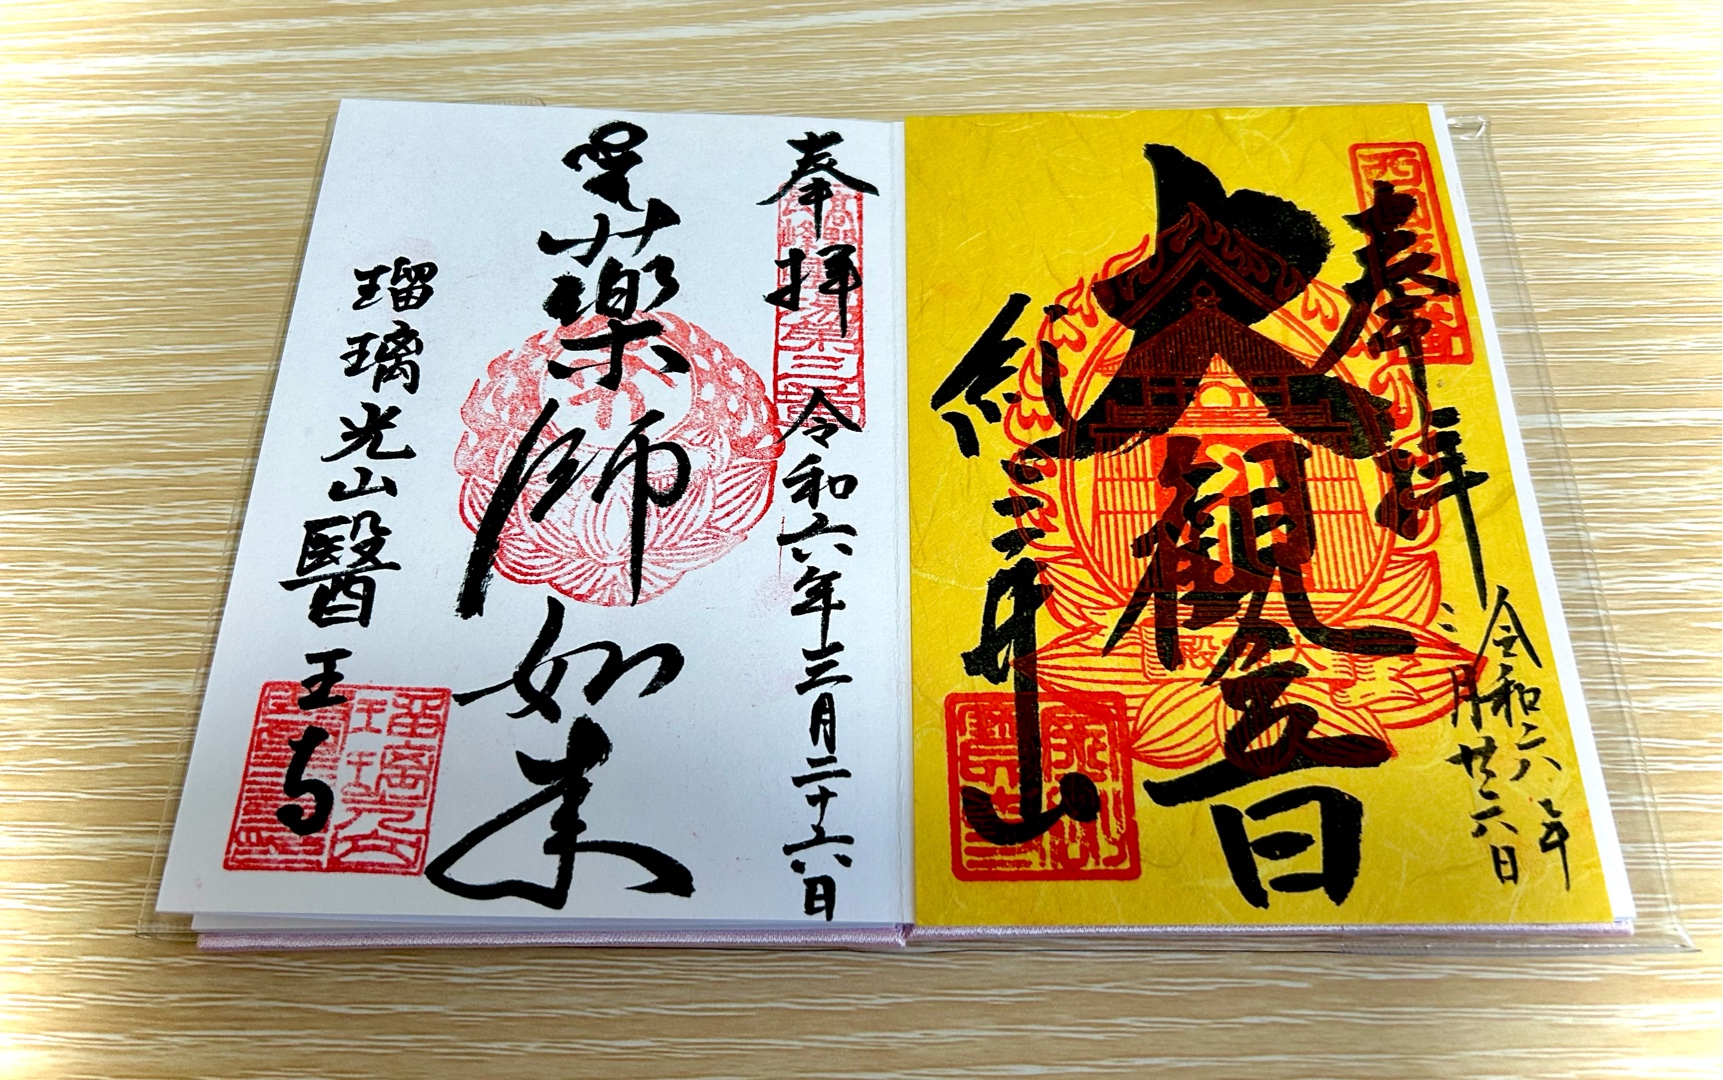 奉拝
令和六年三月廿六日
大観音
大伽殿
紀三井山
奉拝
令和六年三月二十六日
薬師如来
瑠璃光山醫王寺
瑠璃光山